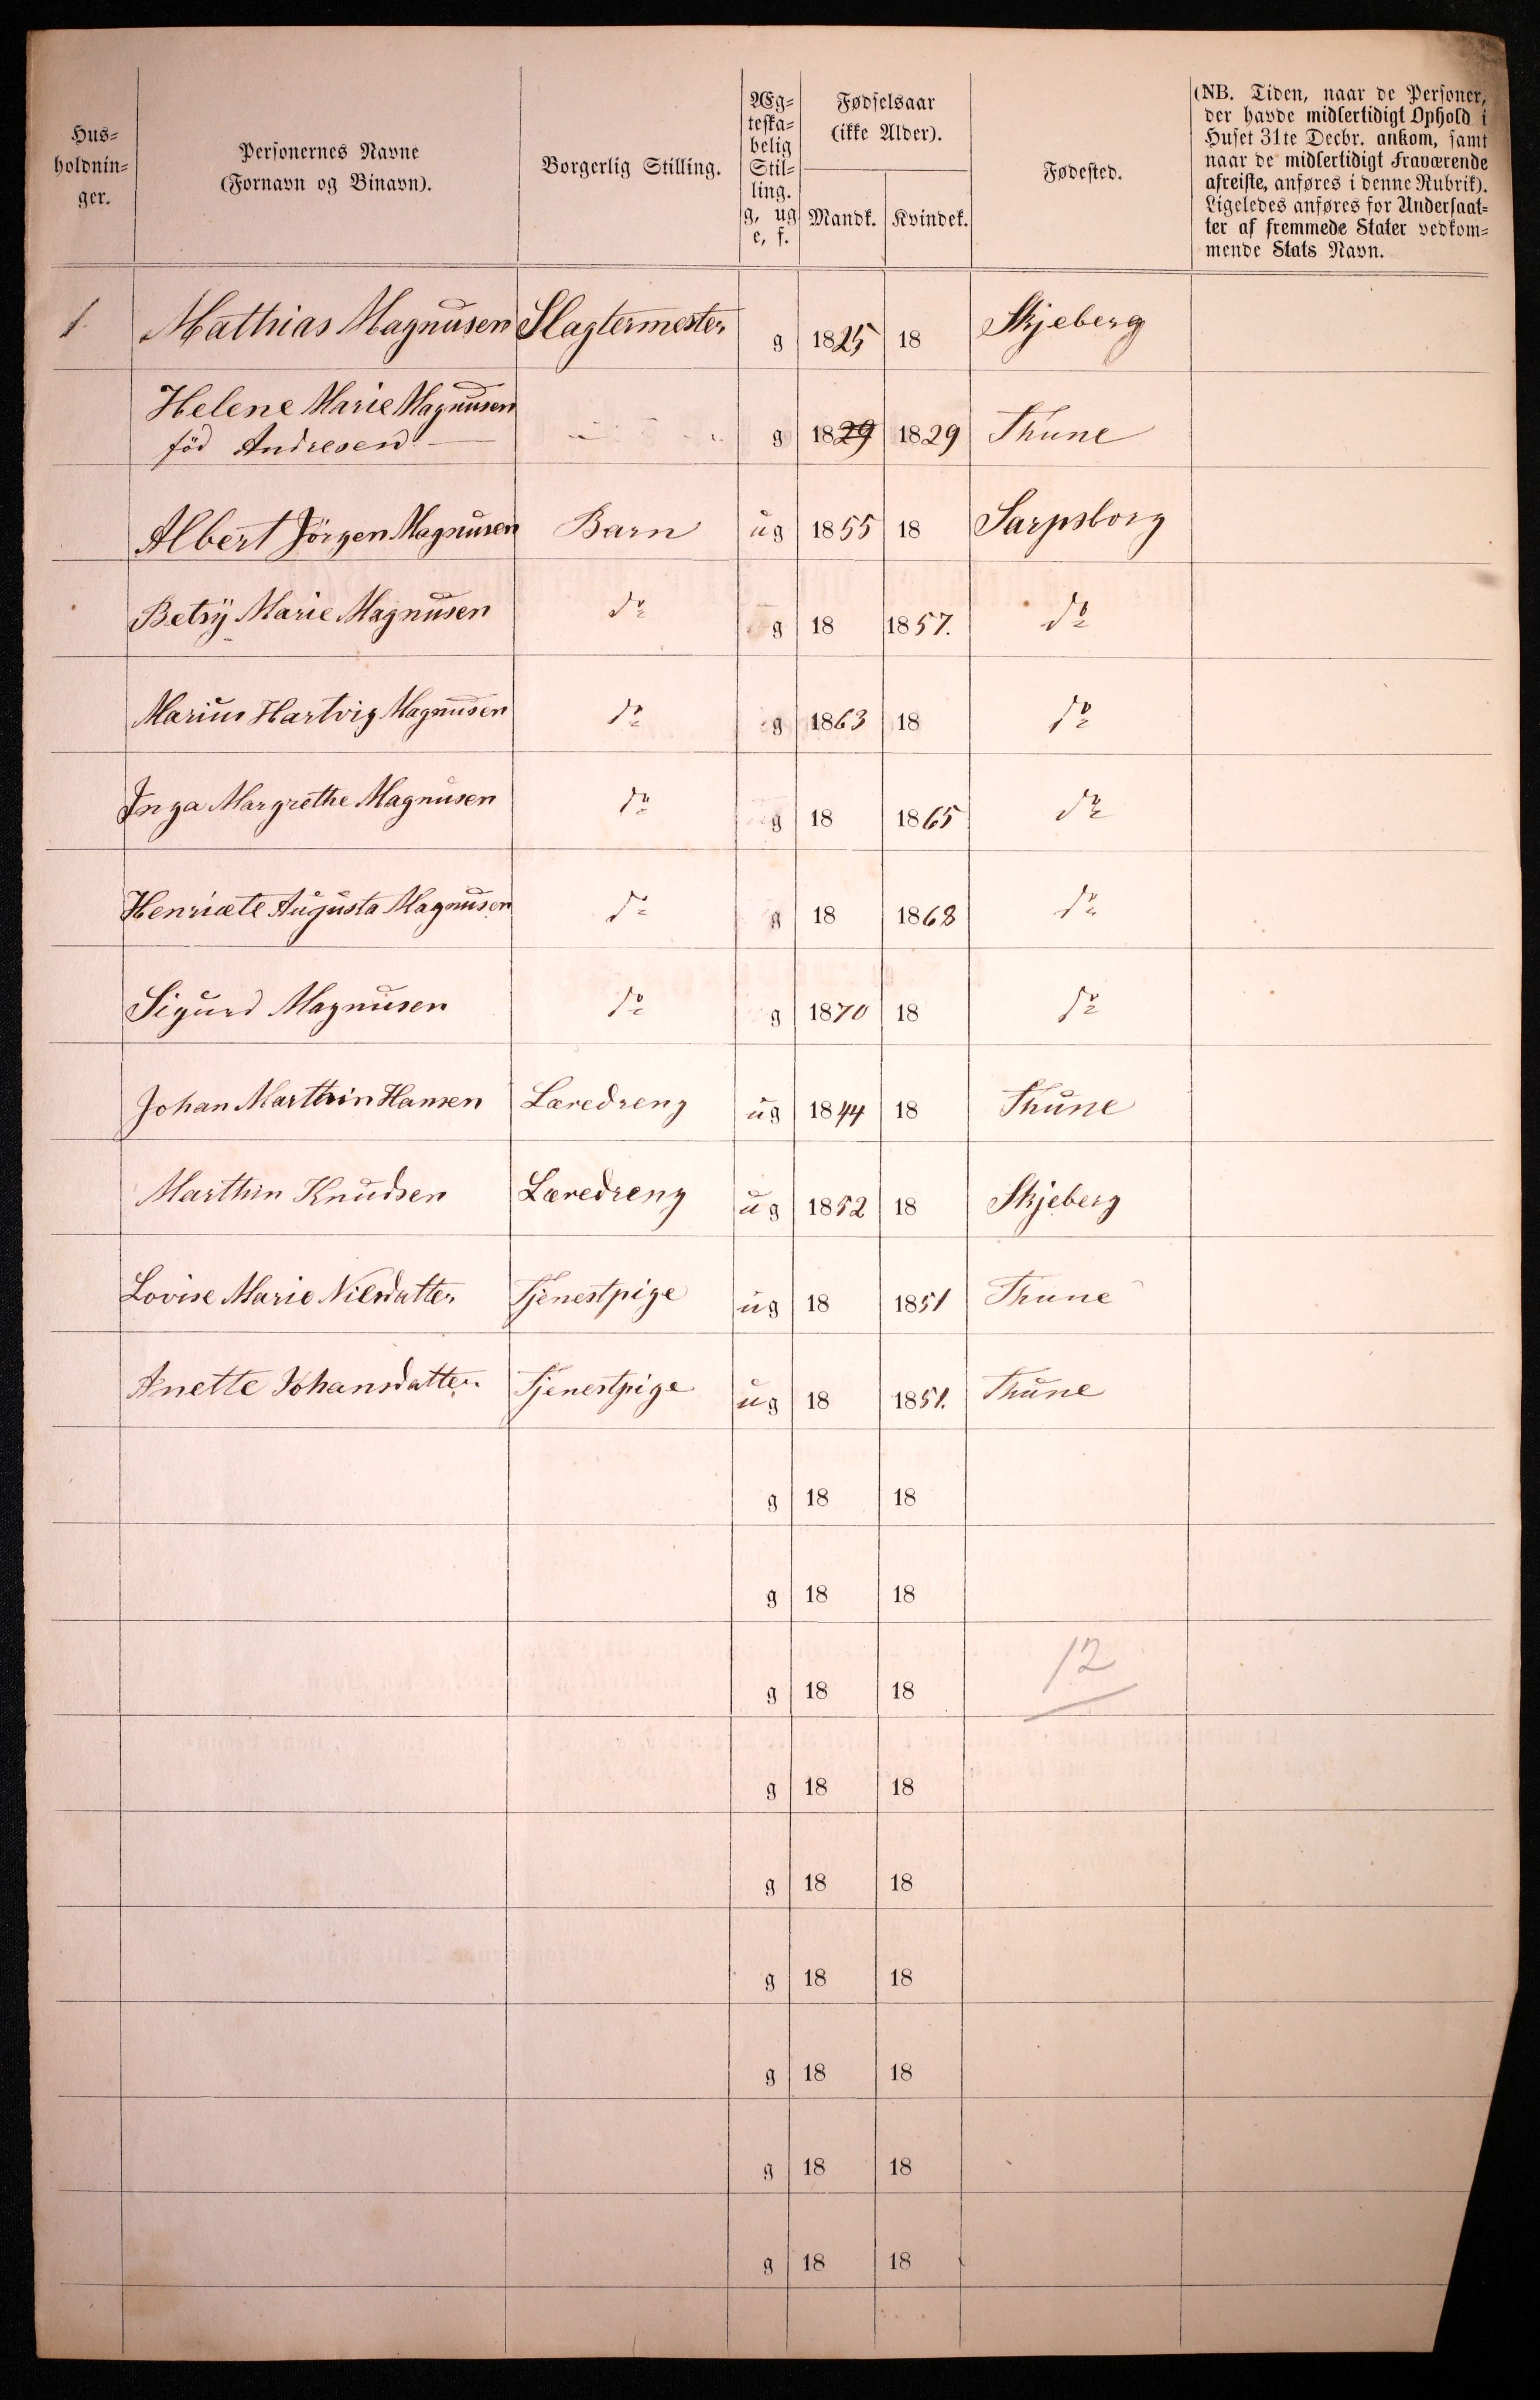 Hus-
holdnin-
ger.
Personernes Navne
(Fornavn og Binavn).
Borgerlig Stilling.
Æg-
teska-
belig
Stil-
ling.
g, ug
e, f.
Fødselsaar
(ikke Alder).
Mandk. Kvindek.
Fødested.
(NB. Tiden, naar de Personer,
der havde midlertidigt Ophold i
Huset 31te Decbr. ankom, samt
naar de midlertidigt Fraværende
afreiste, anføres i denne Rubrik).
Ligeledes anføres for Undersaat-
ter af fremmede Stater vedkom-
mende Stats Navn.
1. Mathias Magnusen Slagtermester g 1825 18 Skjeberg
Helene Marie Magnusen
föd Andresen — g 1829 1829 Thune
Albert Jörgen Magnusen Barn ug 1855 18 Sarpsborg
Betsÿ Marie Magnusen do g 18 1857. do
Marius Hartvig Magnusen do g 1863 18 do
Inga Margrethe Magnusen do g 18 1865 do
Henriæte Augusta Magnusen do g 18 1868 do
Sigurd Magnusen do g 1870 18 do
Johan Marthin Hansen Læredreng ug 1844 18 Thune
Marthin Knudsen Læredreng ug 1852 18 Skjeberg
Lovise Marie Nilsdatter Tjenestpige ug 18 1851 Thune
Anette Johansdatter Tjenestpige ug 18 1851. Thune
g 18 18
g 18 18
g 18 18 12
g 18 18
g 18 18
g 18 18
g 18 18
g 18 18
g 18 18